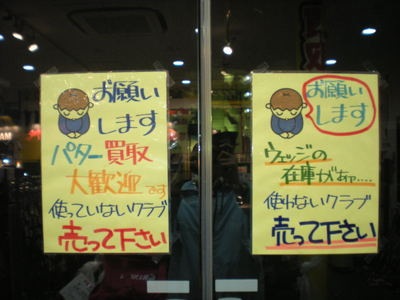 お願い
します
パター買取
大歓迎です
使っていないクラブ
売って下さい
お願い
します
ウェッジの
在庫がァ....
使わないクラブ
売って下さい